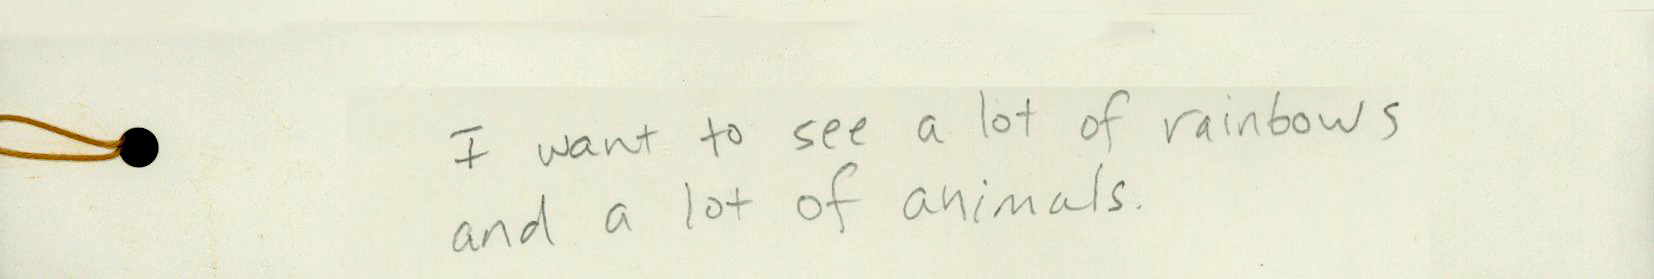 I want to see a lot of rainbows
and a lot of animals.